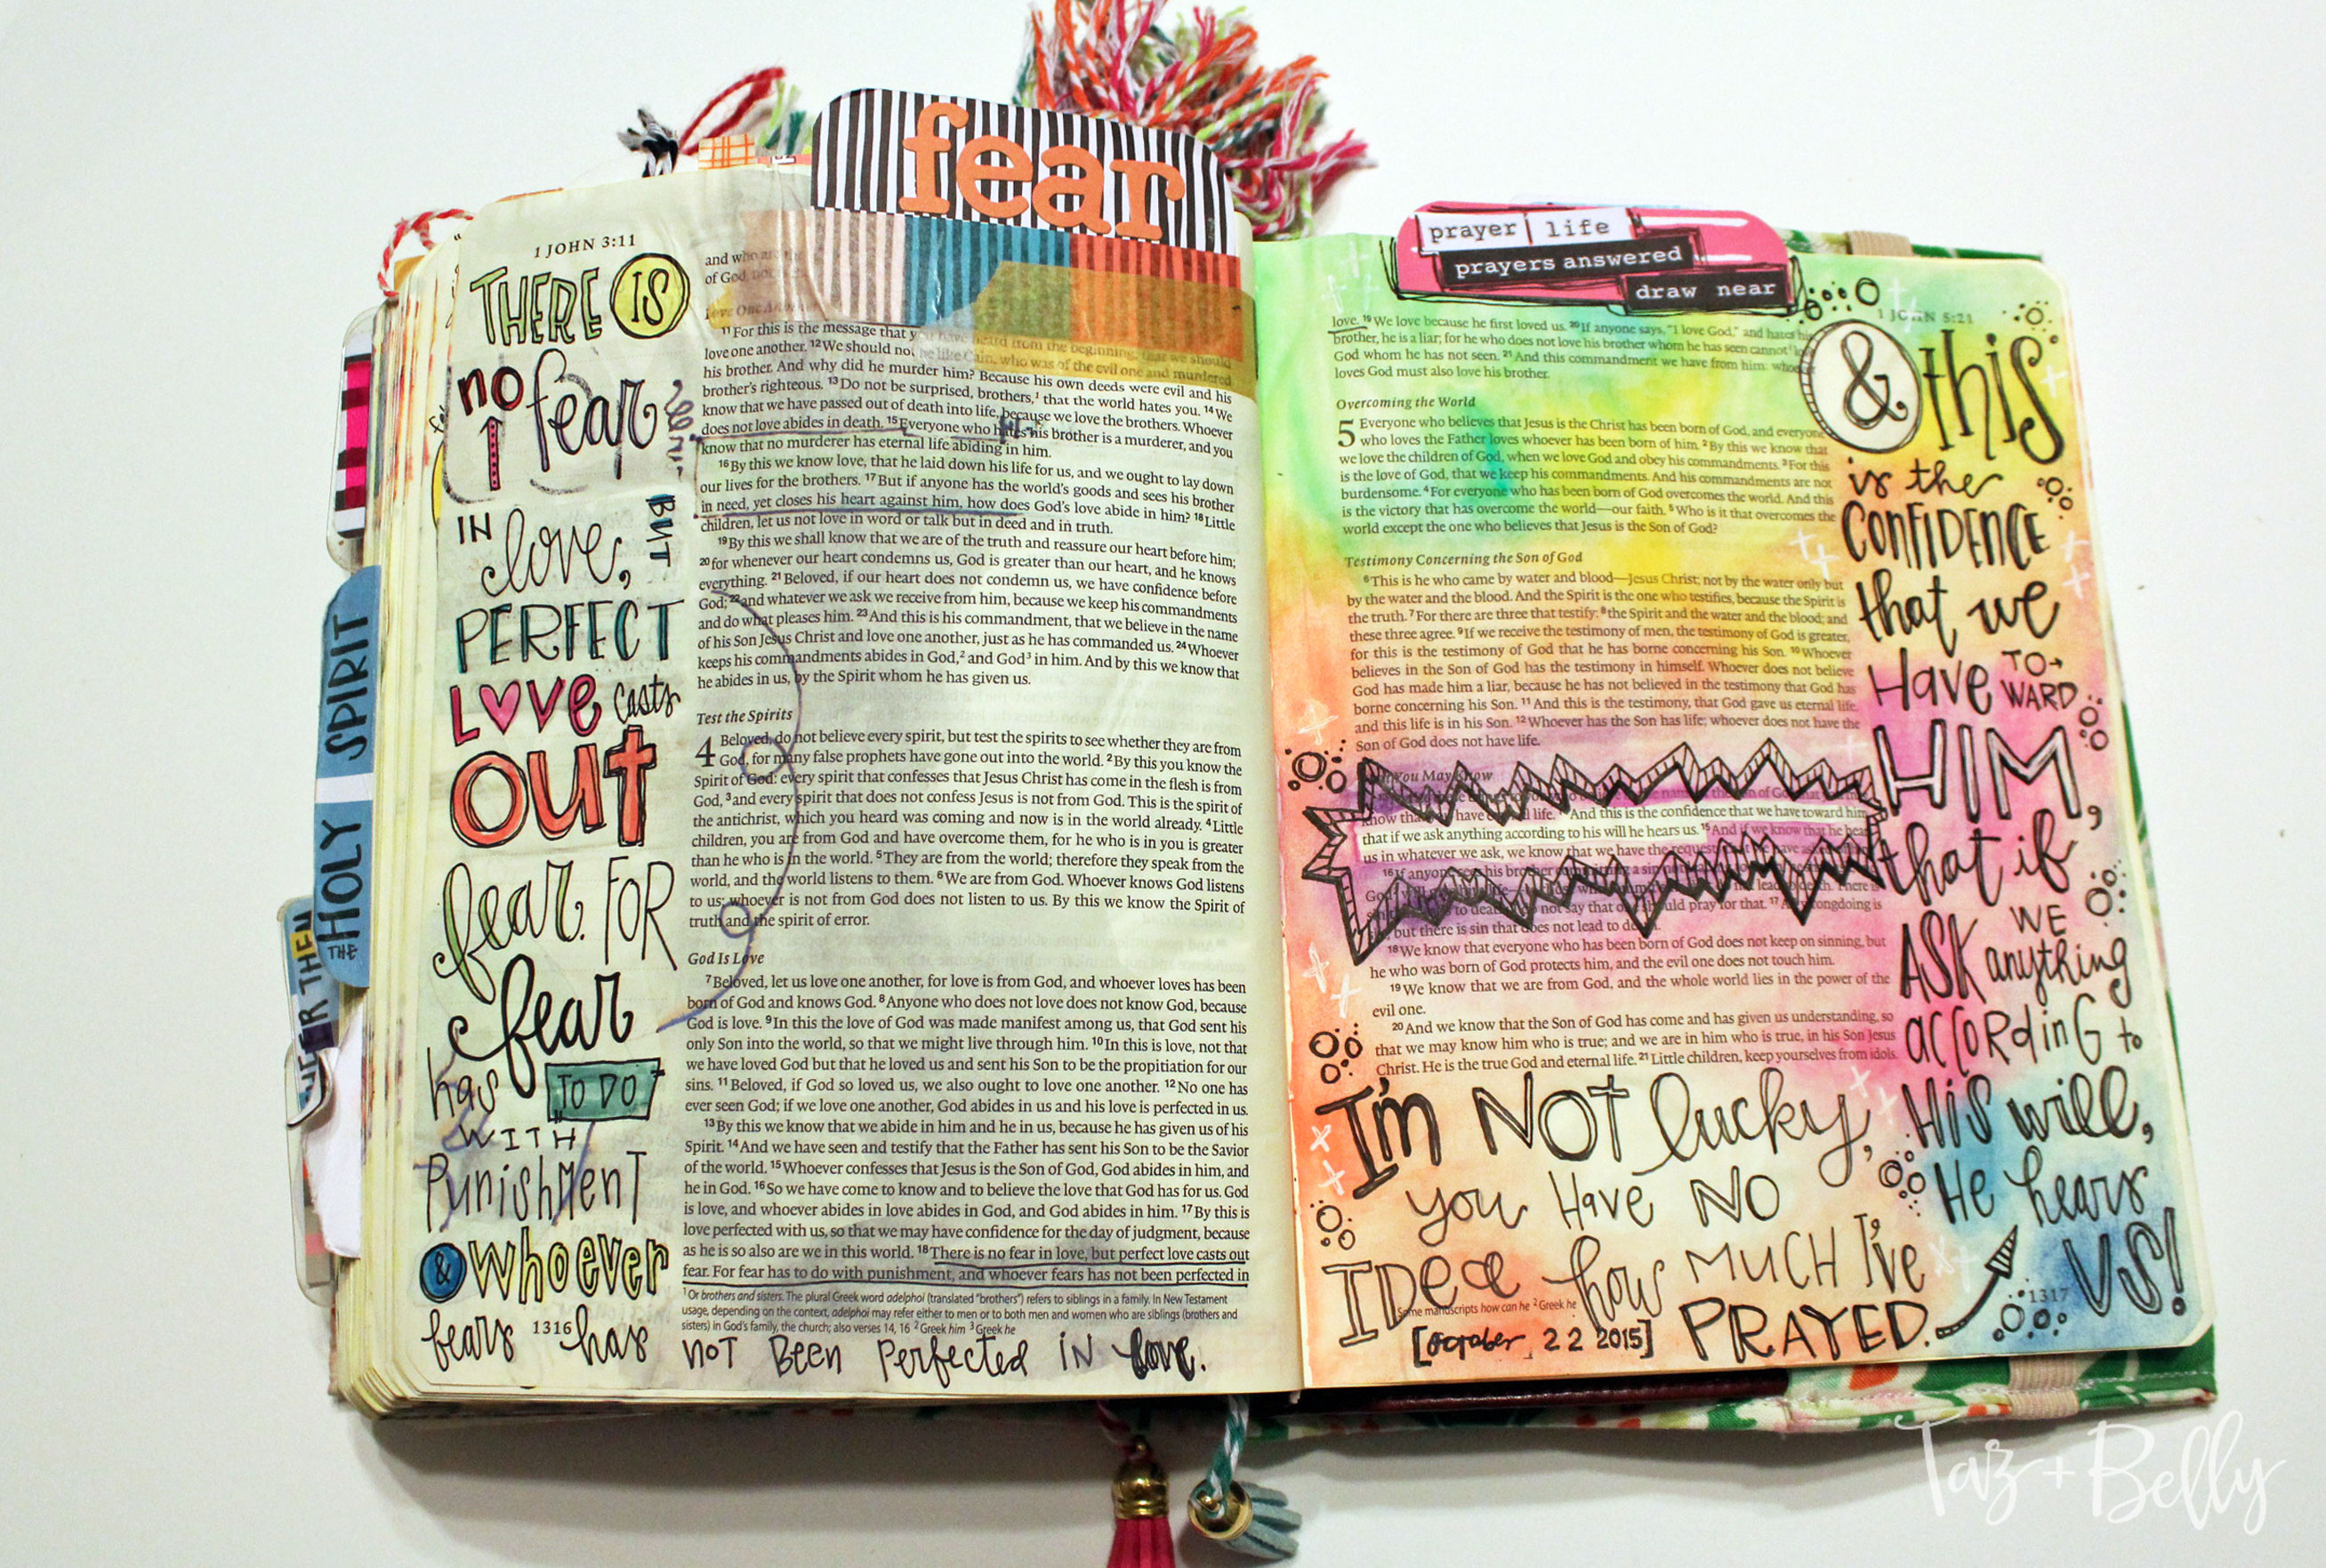 fear
prayer life
prayers answered
draw near
THE HOLY SPIRIT
1 JOHN 3:11
THERE IS
no fear
IN love, BUT
PERFECT
LOVE casts
OUT
fear. FOR
fear
has TO DO
WITH
PUNISHMENT
& whoever
fears 1316 has not Been Perfected IN love.
and who
of God, not
Love One Another
11 For this is the message that you have heard from the beginning, that we should
love one another. 12 We should not be like Cain, who was of the evil one and murdered
his brother. And why did he murder him? Because his own deeds were evil and his
brother's righteous. 13 Do not be surprised, brothers,1 that the world hates you. 14 We
know that we have passed out of death into life, because we love the brothers. Whoever
does not love abides in death. 15 Everyone who hates his brother is a murderer, and you
know that no murderer has eternal life abiding in him.
16 By this we know love, that he laid down his life for us, and we ought to lay down
our lives for the brothers. 17 But if anyone has the world's goods and sees his brother
in need, yet closes his heart against him, how does God's love abide in him? 18 Little
children, let us not love in word or talk but in deed and in truth.
19 By this we shall know that we are of the truth and reassure our heart before him;
20 for whenever our heart condemns us, God is greater than our heart, and he knows
everything. 21 Beloved, if our heart does not condemn us, we have confidence before
God; 22 and whatever we ask we receive from him, because we keep his commandments
and do what pleases him. 23 And this is his commandment, that we believe in the name
of his Son Jesus Christ and love one another, just as he has commanded us. 24 Whoever
keeps his commandments abides in God,2 and God3 in him. And by this we know that
he abides in us, by the Spirit whom he has given us.
Test the Spirits
4 Beloved, do not believe every spirit, but test the spirits to see whether they are from
God, for many false prophets have gone out into the world. 2 By this you know the
Spirit of God: every spirit that confesses that Jesus Christ has come in the flesh is from
God, 3 and every spirit that does not confess Jesus is not from God. This is the spirit of
the antichrist, which you heard was coming and now is in the world already. 4 Little
children, you are from God and have overcome them, for he who is in you is greater
than he who is in the world. 5 They are from the world; therefore they speak from the
world, and the world listens to them. 6 We are from God. Whoever knows God listens
to us; whoever is not from God does not listen to us. By this we know the Spirit of
truth and the spirit of error.
God Is Love
7 Beloved, let us love one another, for love is from God, and whoever loves has been
born of God and knows God. 8 Anyone who does not love does not know God, because
God is love. 9 In this the love of God was made manifest among us, that God sent his
only Son into the world, so that we might live through him. 10 In this is love, not that
we have loved God but that he loved us and sent his Son to be the propitiation for our
sins. 11 Beloved, if God so loved us, we also ought to love one another. 12 No one has
ever seen God; if we love one another, God abides in us and his love is perfected in us.
13 By this we know that we abide in him and he in us, because he has given us of his
Spirit. 14 And we have seen and testify that the Father has sent his Son to be the Savior
of the world. 15 Whoever confesses that Jesus is the Son of God, God abides in him, and
he in God. 16 So we have come to know and to believe the love that God has for us. God
is love, and whoever abides in love abides in God, and God abides in him. 17 By this is
love perfected with us, so that we may have confidence for the day of judgment, because
as he is so also are we in this world. 18 There is no fear in love, but perfect love casts out
fear. For fear has to do with punishment, and whoever fears has not been perfected in
1 Or brothers and sisters. The plural Greek word adelphoi (translated "brothers") refers to siblings in a family. In New Testament
usage, depending on the context, adelphoi may refer either to men or to both men and women who are siblings (brothers and
sisters) in God's family, the church; also verses 14, 16 2 Greek him 3 Greek he
1 JOHN 5:21
love. 19 We love because he first loved us. 20 If anyone says, "I love God," and hates his
brother, he is a liar; for he who does not love his brother whom he has seen cannot
God whom he has not seen. 21 And this commandment we have from him: whoever
loves God must also love his brother.
Overcoming the World
5 Everyone who believes that Jesus is the Christ has been born of God, and everyone
who loves the Father loves whoever has been born of him. 2 By this we know that
we love the children of God, when we love God and obey his commandments. 3 For this
is the love of God, that we keep his commandments. And his commandments are not
burdensome. 4 For everyone who has been born of God overcomes the world. And this
is the victory that has overcome the world—our faith. 5 Who is it that overcomes the
world except the one who believes that Jesus is the Son of God?
Testimony Concerning the Son of God
6 This is he who came by water and blood—Jesus Christ; not by the water only but
by the water and the blood. And the Spirit is the one who testifies, because the Spirit is
the truth. 7 For there are three that testify: 8 the Spirit and the water and the blood; and
these three agree. 9 If we receive the testimony of men, the testimony of God is greater,
for this is the testimony of God that he has borne concerning his Son. 10 Whoever
believes in the Son of God has the testimony in himself. Whoever does not believe
God has made him a liar, because he has not believed in the testimony that God has
borne concerning his Son. 11 And this is the testimony, that God gave us eternal life,
and this life is in his Son. 12 Whoever has the Son has life; whoever does not have the
Son of God does not have life.
You May Know
life. 14 And this is the confidence that we have toward him,
that if we ask anything according to his will he hears us. 15 And if we know that he hears
us in whatever we ask, we know that we have the requests
16 If anyone sees his brother
to death
not say that one should pray for that. 17 All wrongdoing is
but there is sin that does not lead to death.
18 We know that everyone who has been born of God does not keep on sinning, but
he who was born of God protects him, and the evil one does not touch him.
19 We know that we are from God, and the whole world lies in the power of the
evil one.
20 And we know that the Son of God has come and has given us understanding, so
that we may know him who is true; and we are in him who is true, in his Son Jesus
Christ. He is the true God and eternal life. 21 Little children, keep yourselves from idols.
Some manuscripts how can he 2 Greek he
1317
& this
is the
CONFIDENCE
that we
Have TOWARD
HIM,
that if
WE
ASK anything
ACCORDING to
His will,
He hears
US!
I'm NOT lucky,
you Have NO
IDea how MUCH I've
PRAYED.
[october 22 2015]
Taz + Belly